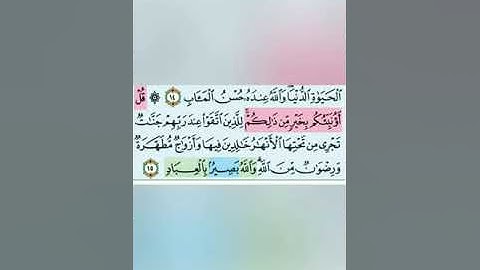 ٱلْحَيَوٰةِ ٱلدُّنْيَا وَٱللَّهُ عِندَهُۥ حُسْنُ ٱلْمَـَٔابِ ١٤ ۞ قُلْ
أَؤُنَبِّئُكُم بِخَيْرٍ مِّن ذَٰلِكُمْ لِلَّذِينَ ٱتَّقَوْا۟ عِندَ رَبِّهِمْ جَنَّٰتٌ
تَجْرِى مِن تَحْتِهَا ٱلْأَنْهَٰرُ خَٰلِدِينَ فِيهَا وَأَزْوَٰجٌ مُّطَهَّرَةٌ
وَرِضْوَٰنٌ مِّنَ ٱللَّهِ وَٱللَّهُ بَصِيرٌۢ بِٱلْعِبَادِ ١٥